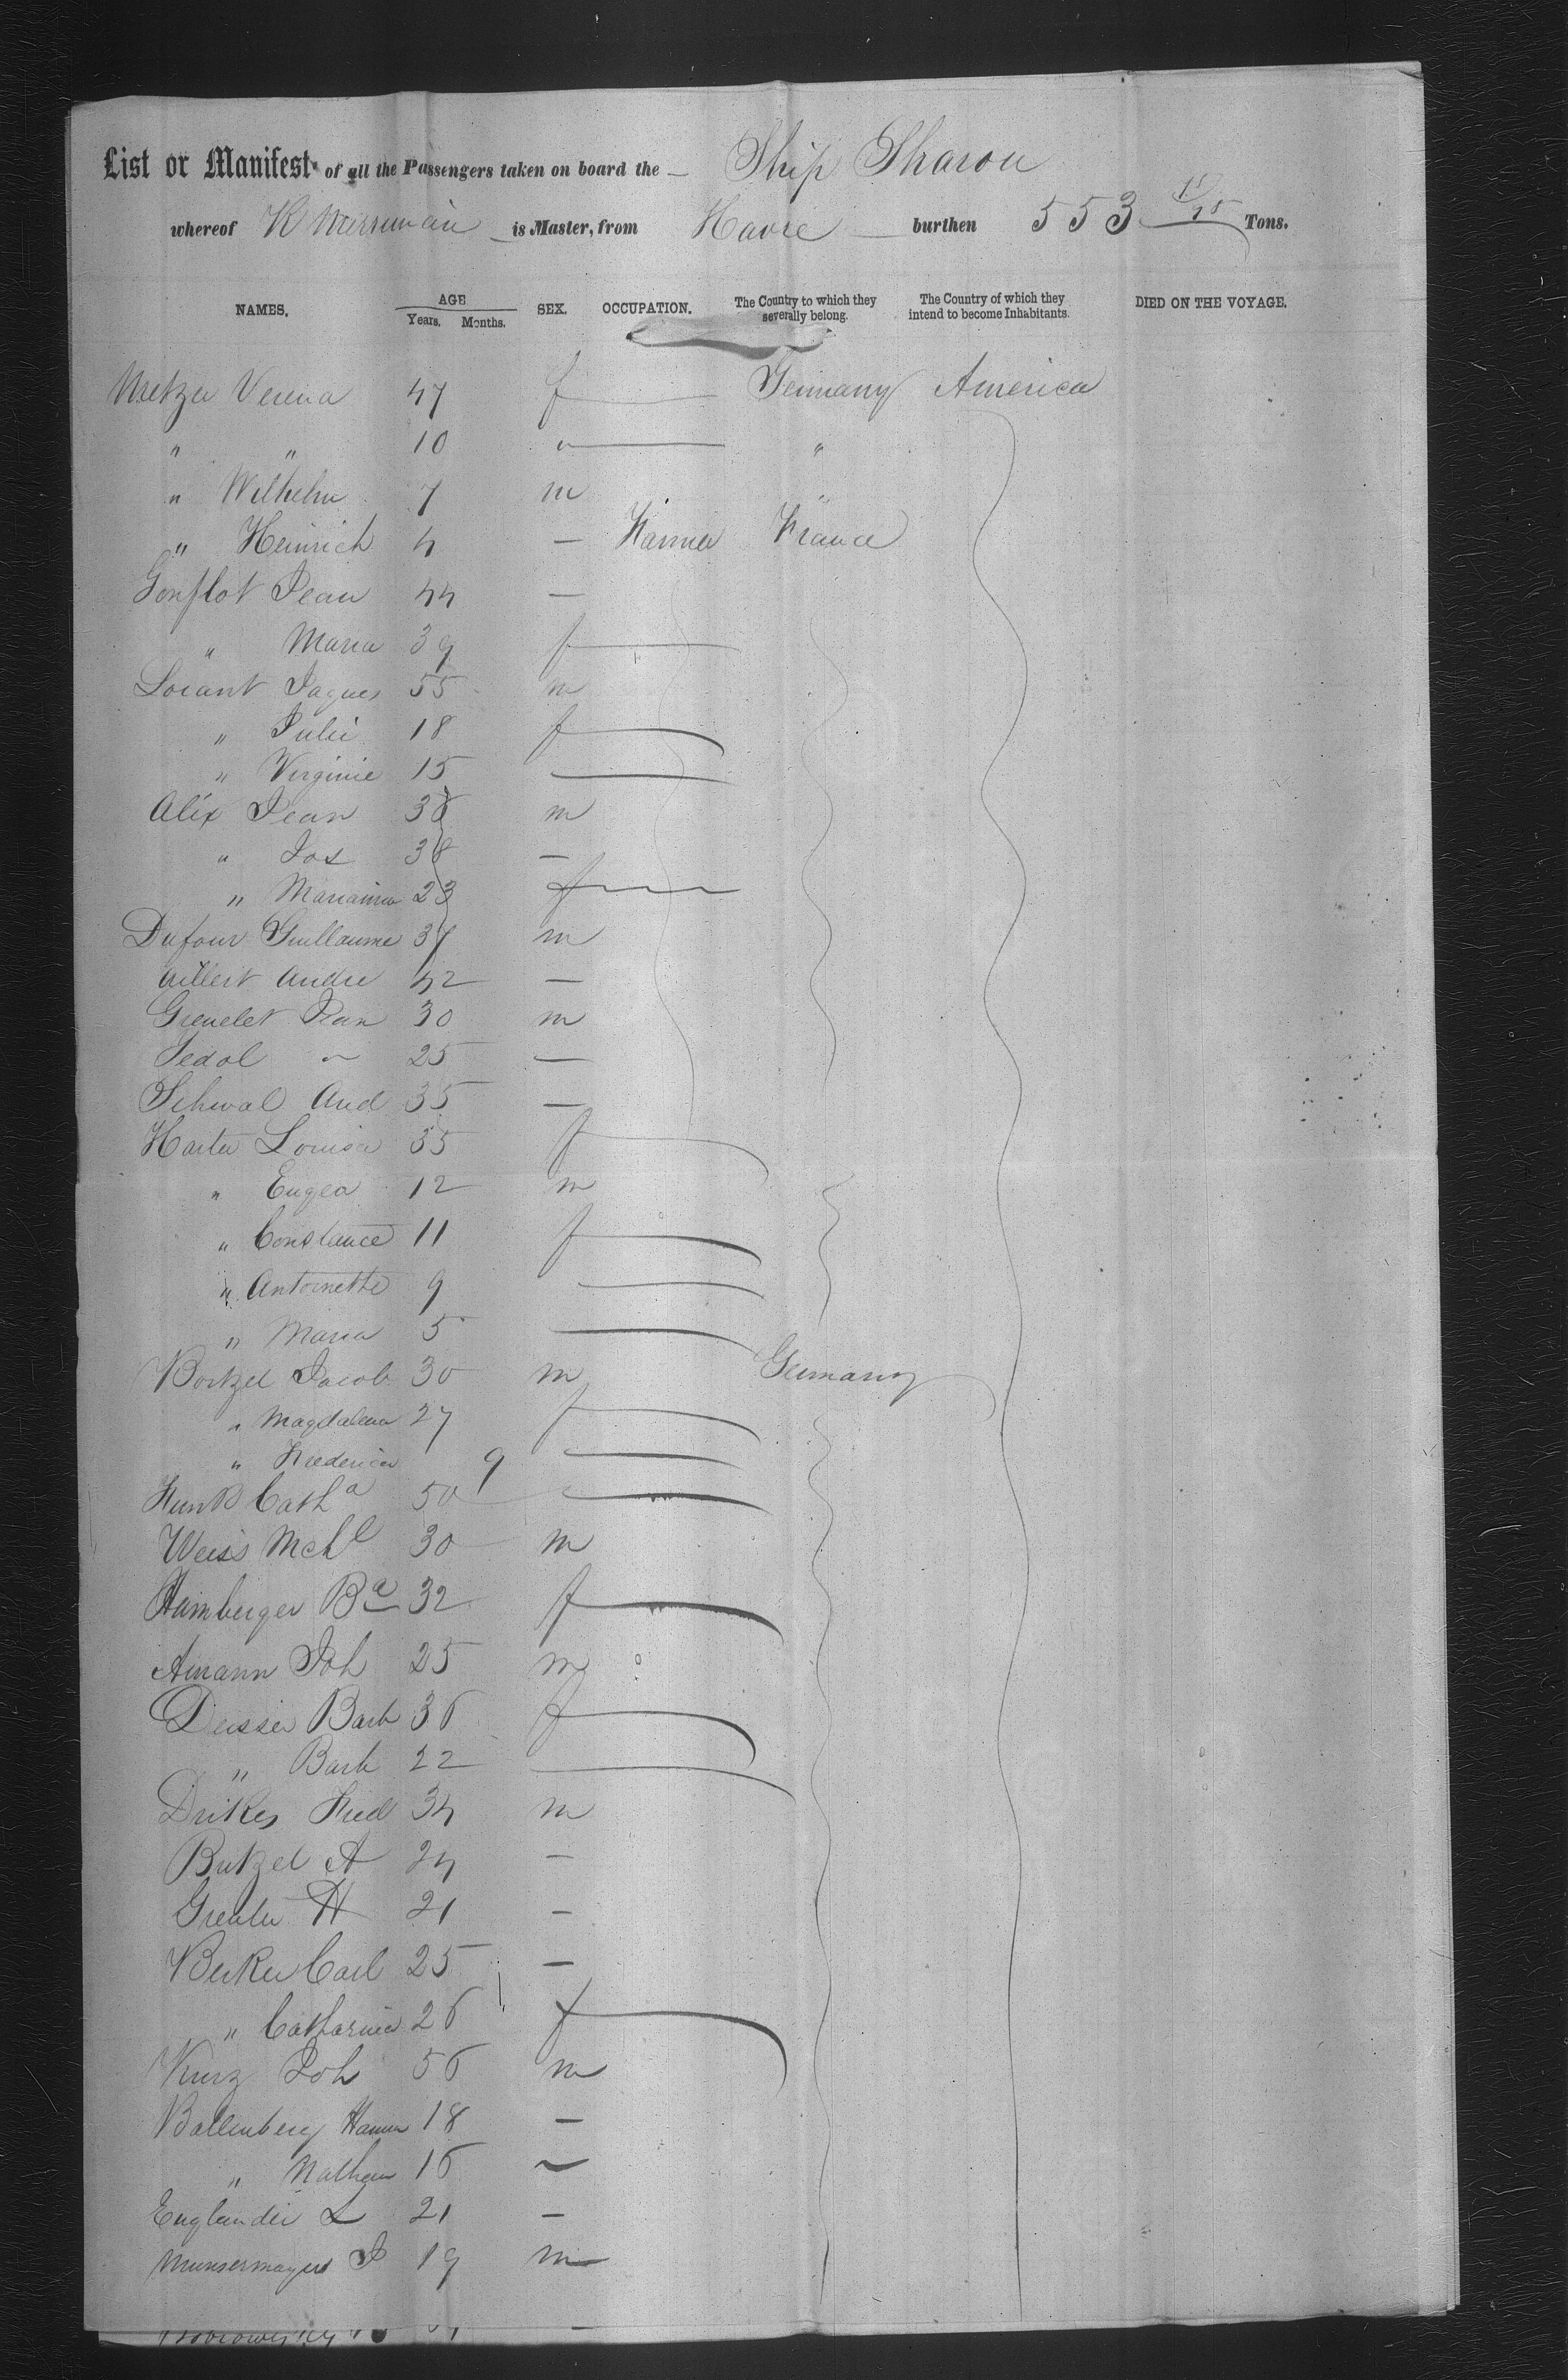 List or Manifest of all the Passengers taken on board the Ship Sharon
whereof is Master, from Havre burthen 553 Tons.
NAMES. AGE SEX. OCCUPATION. The Country to which they severally belong. The Country of which they intend to become Inhabitants. DIED ON THE VOYAGE.
Years. Months.
Metzer Verena 47 f Germany America
" " 10 " "
" Wilhelm 7 m "
" Heinrich 4 — Farmer France
Jean 44 —
" Maria 39 f
Lorant Jaques 55 m
" Julie 18 f
" Virginie 15
Alix Jean 38 m
" Jos 38 —
" Marianna 23 f
Dufour Guillaume 37 m
Andre 42 —
Grevelet Jean 30 m
Fedol " 25 —
Schwal And 35 —
Harter Louisa 35 f
" Eugen 12 m
" Constance 11 f
" Antoinette 9
" Maria 5
Jacob 30 m Germany
" Magdalena 27 f
" Frederica 9
Funk Catha 50 "
Weiss Mchl 30 m
Hamberger Ba 32 f
Amann Joh 25 m
Deisser Barb 36 f
" Barb 22
Drikes Fred 34 m
Butzel A 24 —
H 21 —
Beker Carl 25 —
" Catharina 26 f
Kurz Joh 56 m
Ballenberg 18 —
" Nathan 16 —
Englander L 21 —
J 19 m